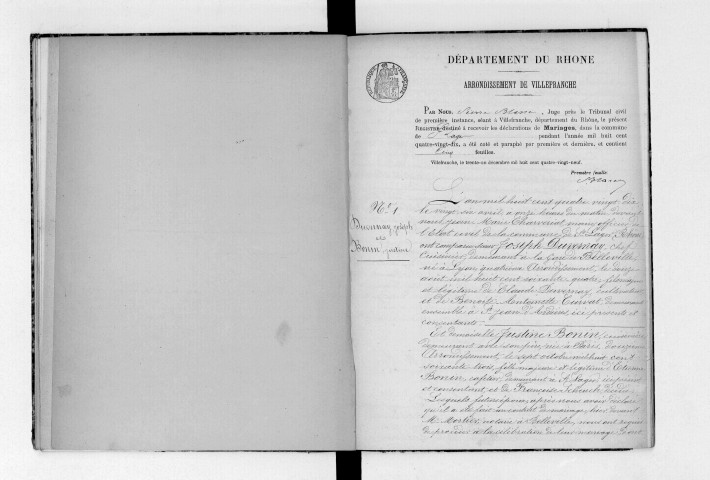 DÉPARTEMENT DU RHONE
ARRONDISSEMENT DE VILLEFRANCHE
PAR NOUS, Juge près le Tribunal civil
de première instance, séant à Villefranche, département du Rhône, le présent
REGISTRE destiné à recevoir les déclarations de Mariages, dans la commune
de St Lager pendant l'année mil huit cent
quatre-vingt-dix, a été coté et paraphé par première et dernière, et contient
cinq feuilles.
Villefranche, le trente-un décembre mil huit cent quatre-vingt-neuf.
Première feuille
No 1
Duvernay Joseph
et
Bonin Justine
L'an mil huit cent quatre vingt dix
le vingt six avril à onze heures du matin devant
nous Jean Marie Charveriat, maire officier de
l'état civil de la commune de St Lager, Rhône
ont comparu Joseph Duvernay, chef
cuisinier, demeurant à la gare de Belleville
né à Lyon quatrième arrondissement, le
août mil huit cent soixante quatre, fils majeur
et légitime de Claude Duvernay, cultivateur
et de Benoîte Antoinette demeurant
ensemble à St Jean d'Ardières, ici présents et
consentants.
Et demoiselle Justine Bonin,
demeurant avec son père, née à Paris,
arrondissement, le sept octobre mil huit cent
soixante trois, fille majeure et légitime d'Etienne
Bonin, demeurant à St Lager, ici présent
et consentant et de Françoise
Lesquels futurs époux, après nous avoir déclaré
qu'il a été fait un contrat de mariage, devant
Me notaire à Belleville, nous ont requis
de procéder à la célébration de leur mariage